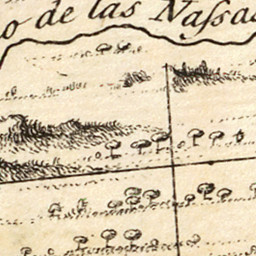 o de las Naſsa